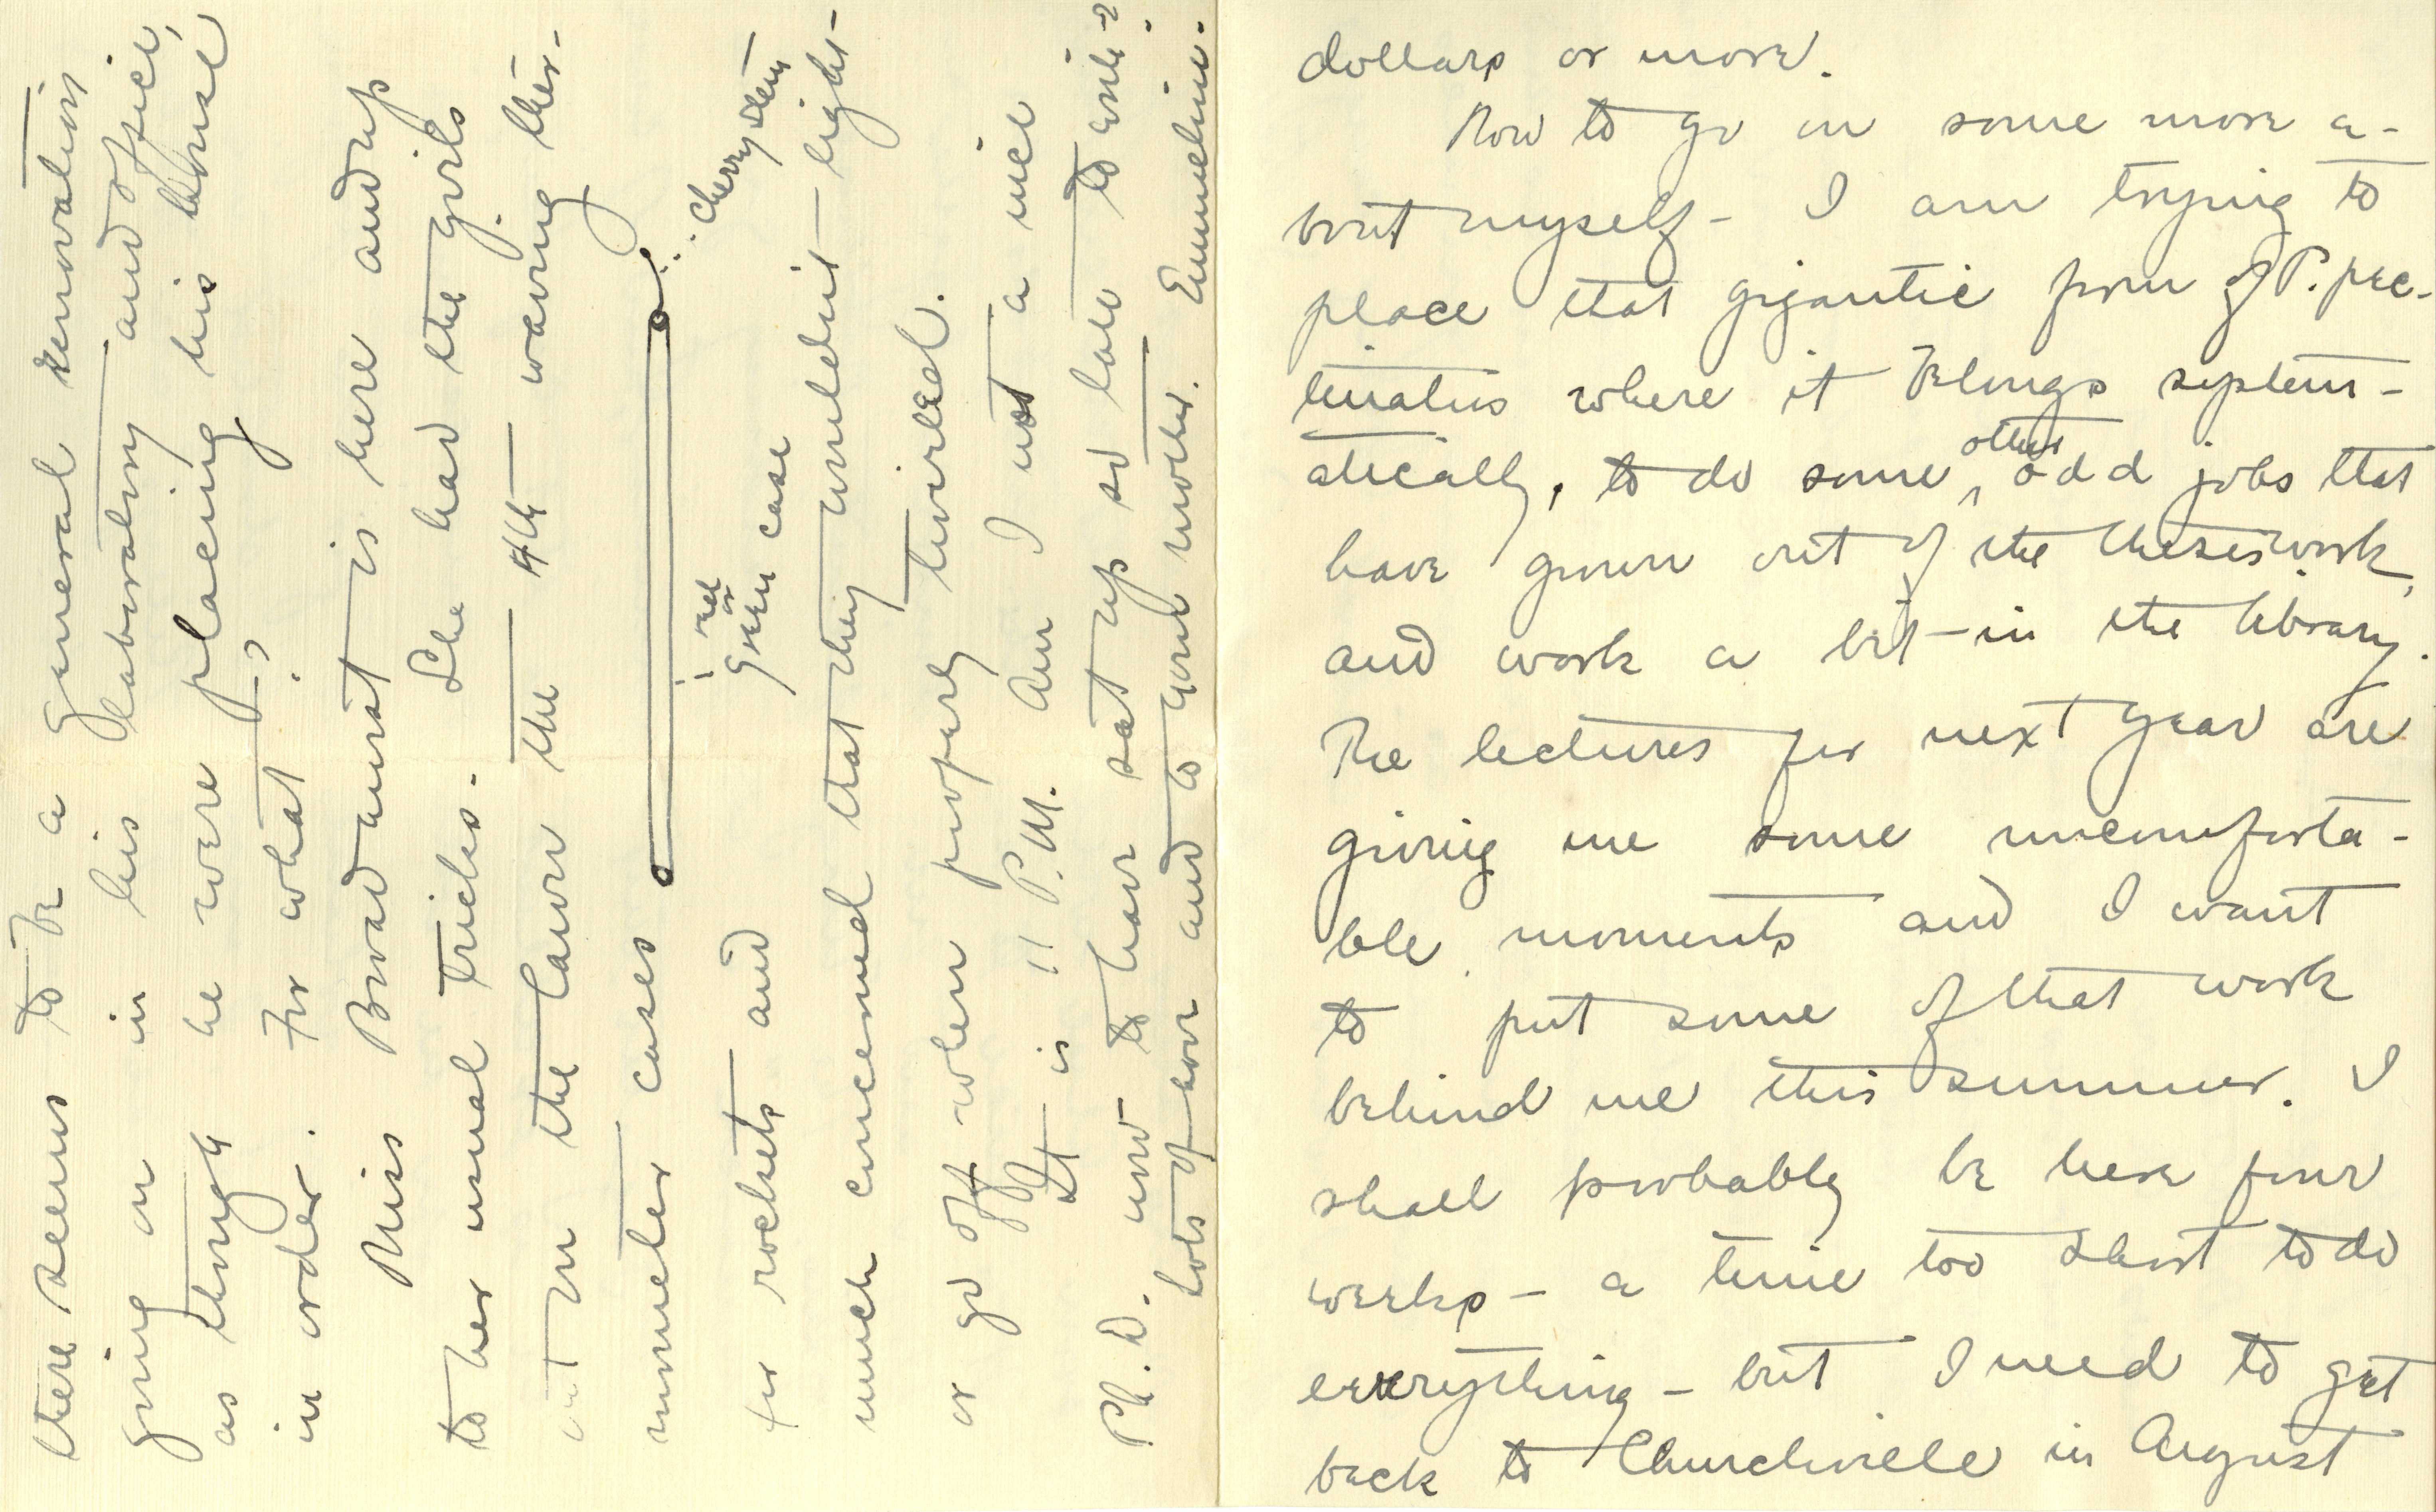 dollars or more.
Now to go on some more a-
bout myself - I am trying to
place that gigantic form of P. pec-
tinatus where it belongs system-
atically, to do some other odd jobs that
have grown out of the thesis work,
and work a bit in the library.
The lectures for next year are
giving me some uncomforta-
ble moments and I want
to put some of that work
behind me this summer. I
shall probably be here four
weeks - a time too short to do
everything - but I need to get
back to Churchville in August
there seems to be a general renovation
going on in his laboratory and office,
as though he were placing his house
in order. For what?
Miss Broadhurst is here and up
to her usual tricks. She had the girls
out on the lawn the 4th - waving ther-
mometer cases
red
or
green case
cherry stem
for rockets and
much concerned that they wouldn't light -
or go off when properly twirled.
It is 11 P.M. Am I not a nice
Ph.D. now to have sat up so late to write?
Lots of love and to your mother. Emmeline.